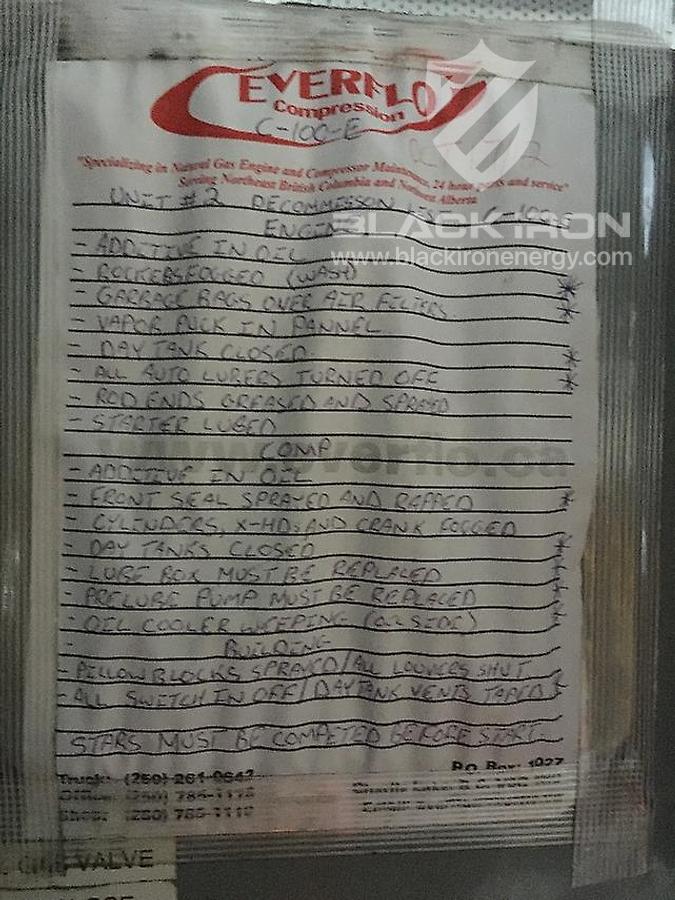 EVERFLO
Compression
C-100-E
"Specializing in Natural Gas Engine and Compressor Maintenance, 24 hour parts and service"
Serving Northeast British Columbia and Northern Alberta
BLACK IRON
www.blackironenergy.com
UNIT #2 DECOMMISSON LIST C-100-E
ENGINE
- ADDITIVE IN OIL
- ROCKERS FOGGED (WASH) *
- GARBAGE BAGS OVER AIR FILTERS. *
- VAPOR PUCK IN PANNEL
- DAY TANK CLOSED *
- ALL AUTO LUBERS TURNED OFF *
- ROD ENDS GREASED AND SPRAYED
- STARTER LUBED
COMP
- ADDITIVE IN OIL
- FRONT SEAL SPRAYED AND RAPPED *
- CYLINDERS, X-HDS AND CRANK FOGGED
- DAY TANKS CLOSED *
- LUBE BOX MUST BE REPLACED *
- PRELUBE PUMP MUST BE REPLACED *
- OIL COOLER WEEPING (OIL SIDE) *
- BUILDING
- PILLOW BLOCKS SPRAYED / ALL LOUVERS SHUT
- ALL SWITCH IN OFF / DAYTANK VENTS TAPED *
STARS MUST BE COMPETED BEFORE START.
Truck: (250) 261-9647
P.O. Box: 1027
Office: (250) 785-1118
Shop: (250) 785-1119
VALVE